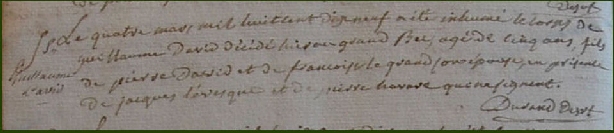 Le quatre mars mil huit cent dix neuf a été inhumé le corps de
guillaume David décédé hier au grand Bec, agé de cinq ans, fils
guillaume
David
de pierre David et de françoise le grand, son epouse, en présence
de jacques levesque et de pierre havare qui ne signent.
Durand Dssrt